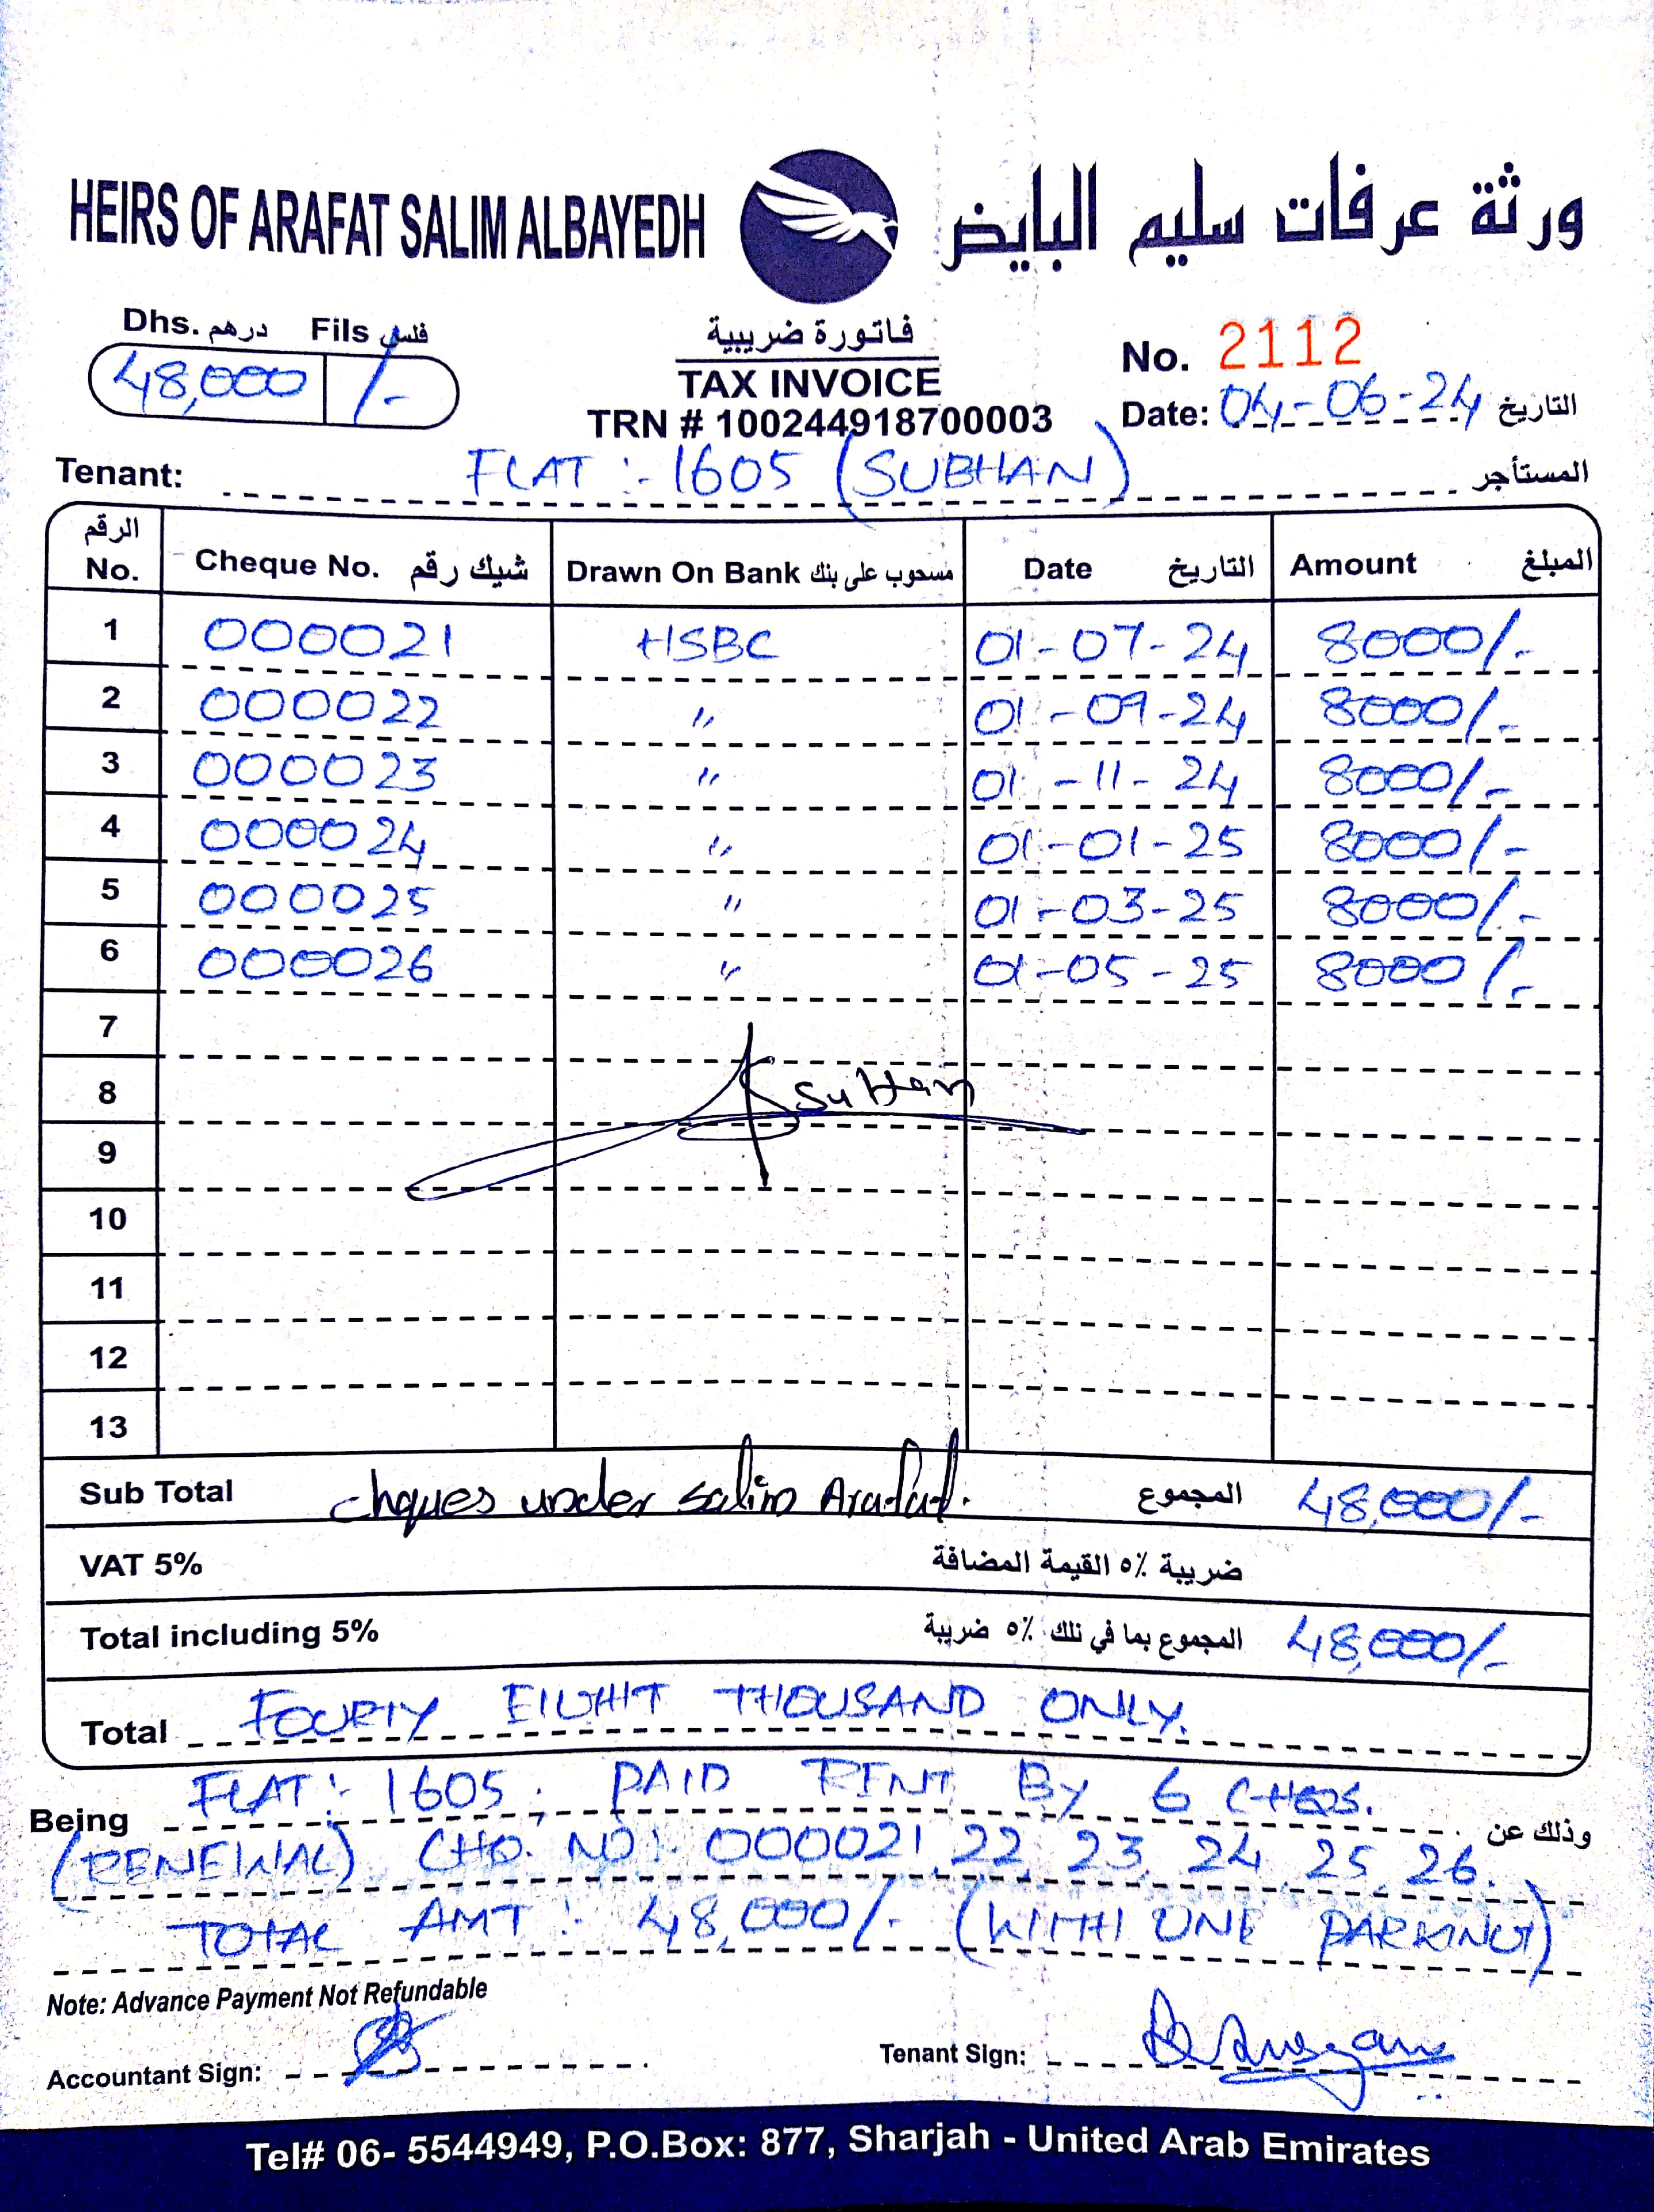 HEIRS OF ARAFAT SALIM ALBAYEDH ورثة عرفات سليم البايض
Dhs. درهم Fils فلس
48,000 /-
فاتورة ضريبية
TAX INVOICE
TRN # 100244918700003
No. 2112
Date: 04-06-24 التاريخ
Tenant: FLAT :- 1605 (SUBHAN) المستأجر
الرقم No. Cheque No. شيك رقم Drawn On Bank مسحوب على بنك Date التاريخ Amount المبلغ
1 000021 HSBC 01-07-24 8000/-
2 000022 " 01-09-24 8000/-
3 000023 " 01-11-24 8000/-
4 000024 " 01-01-25 8000/-
5 000025 " 01-03-25 8000/-
6 000026 " 01-05-25 8000/-
7
8 Subhan
9
10
11
12
13
Sub Total chques under salim Arafat. المجموع 48,000/-
VAT 5% ضريبة ٥٪ القيمة المضافة
Total including 5% المجموع بما في تلك ٥٪ ضريبة 48,000/-
Total FOURTY EIGHT THOUSAND ONLY.
Being FLAT :- 1605, PAID RENT BY 6 CHQS. وذلك عن
(RENEWAL) CHQ. NO :- 000021, 22, 23, 24, 25, 26.
TOTAL AMT :- 48,000/- (WITH ONE PARKING)
Note: Advance Payment Not Refundable
Accountant Sign: Tenant Sign:
Tel# 06- 5544949, P.O.Box: 877, Sharjah - United Arab Emirates